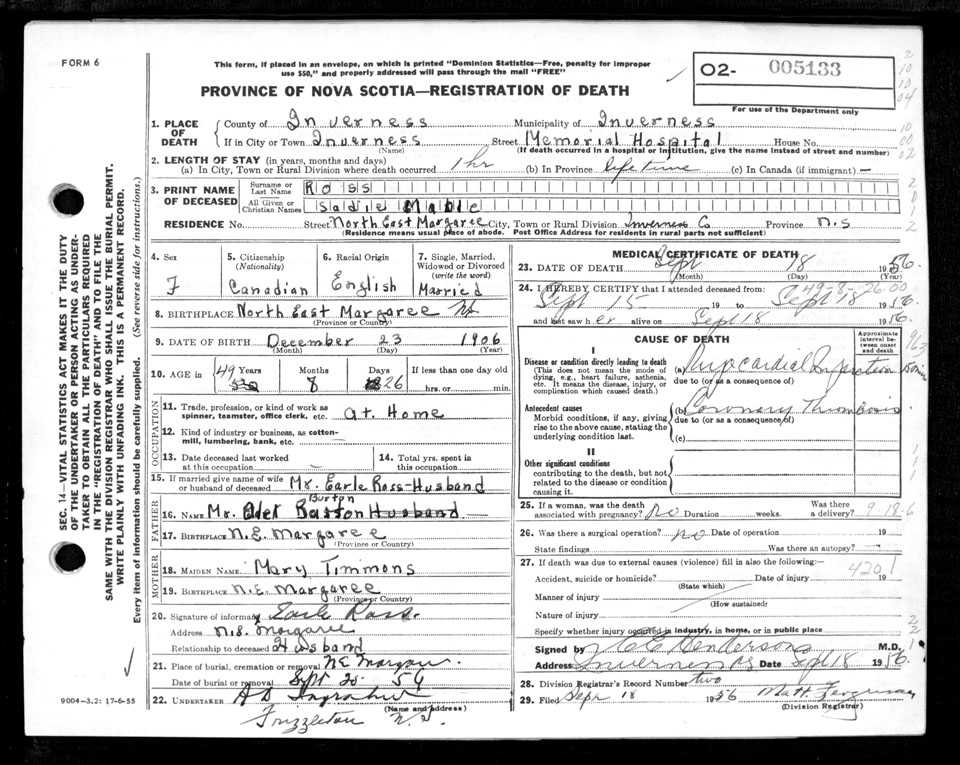 FORM 6
This form, if placed in an envelope, on which is printed "Dominion Statistics—Free, penalty for improper
use $50," and properly addressed will pass through the mail "FREE"
PROVINCE OF NOVA SCOTIA—REGISTRATION OF DEATH
02- 005133
For use of the Department only
1. PLACE OF DEATH
County of Inverness Municipality of Inverness
If in City or Town Inverness Street Memorial Hospital House No.
(Name) (If death occurred in a hospital or institution, give the name instead of street and number)
2. LENGTH OF STAY (in years, months and days)
(a) In City, Town or Rural Division where death occurred 1 hr (b) In Province life time (c) In Canada (if immigrant) —
3. PRINT NAME OF DECEASED
Surname or Last Name Ross
All Given or Christian Names Sadie Mable
RESIDENCE No. Street North East Margaree City, Town or Rural Division Inverness Co Province N.S
(Residence means usual place of abode. Post Office Address for residents in rural parts not sufficient)
4. Sex F
5. Citizenship (Nationality) Canadian
6. Racial Origin English
7. Single, Married, Widowed or Divorced (write the word) Married
8. BIRTHPLACE North East Margaree NS
(Province or Country)
9. DATE OF BIRTH December 23 1906
(Month) (Day) (Year)
10. AGE in 49 Years 8 Months 26 Days If less than one day old
hrs. or min.
OCCUPATION
11. Trade, profession, or kind of work as
spinner, teamster, office clerk, etc. at. Home
12. Kind of industry or business, as cotton-
mill, lumbering, bank, etc.
13. Date deceased last worked
at this occupation —
14. Total yrs. spent in
this occupation
15. If married give name of wife
or husband of deceased Mr. Earle Ross-Husband
FATHER
Burton
16. NAME Mr. Husband
17. BIRTHPLACE N.E. Margaree
(Province or Country)
MOTHER
18. MAIDEN NAME Mary Timmons
19. BIRTHPLACE N.E. Margaree
(Province or Country)
20. Signature of informant Earle Ross.
Address N.E. Margaree
Relationship to deceased Husband
21. Place of burial, cremation or removal N E Margaree
Date of burial or removal Sept 20 56
22. UNDERTAKER
(Name and Address)
Frizzleton N.S
9004—3.2: 17-6-55
MEDICAL CERTIFICATE OF DEATH
23. DATE OF DEATH Sept 18 1956
(Month) (Day) (Year)
49-8-26-00
24. I HEREBY CERTIFY that I attended deceased from:
Sept 15 19 to Sept 18 1956
and last saw her alive on Sept 18 1956
CAUSE OF DEATH
Approximate interval between onset and death
I
Disease or condition directly leading to death
(This does not mean the mode of dying, e.g., heart failure, asthenia, etc. It means the disease, injury, or complication which caused death.)
(a) Myocardial Infarction
due to (or as a consequence of)
Antecedent causes
Morbid conditions, if any, giving rise to the above cause, stating the underlying condition last.
(b) Coronary Thrombosis
due to (or as a consequence of)
(c)
II
Other significant conditions
contributing to the death, but not related to the disease or condition causing it.
25. If a woman, was the death
associated with pregnancy? no Duration weeks. Was there a delivery? 9-18-6
26. Was there a surgical operation? no Date of operation 19
State findings Was there an autopsy? -
27. If death was due to external causes (violence) fill in also the following:—
420.1
Accident, suicide or homicide? Date of injury 19
(State which)
Manner of injury
(How sustained)
Nature of injury
Specify whether injury occurred in industry, in home, or in public place
Signed by Henderson M.D.
Address Inverness NS Date Sept 18 1956.
28. Division Registrar's Record Number two
29. Filed Sept 18 1956 Matt. Ferguson
(Division Registrar)
SEC. 14—VITAL STATISTICS ACT MAKES IT THE DUTY
OF THE UNDERTAKER OR PERSON ACTING AS UNDER-
TAKER TO OBTAIN ALL THE PARTICULARS REQUIRED
IN THE "REGISTRATION OF DEATH" AND TO FILE THE
SAME WITH THE DIVISION REGISTRAR WHO SHALL ISSUE THE BURIAL PERMIT.
WRITE PLAINLY WITH UNFADING INK. THIS IS A PERMANENT RECORD.
Every item of information should be carefully supplied. (See reverse side for instructions.)